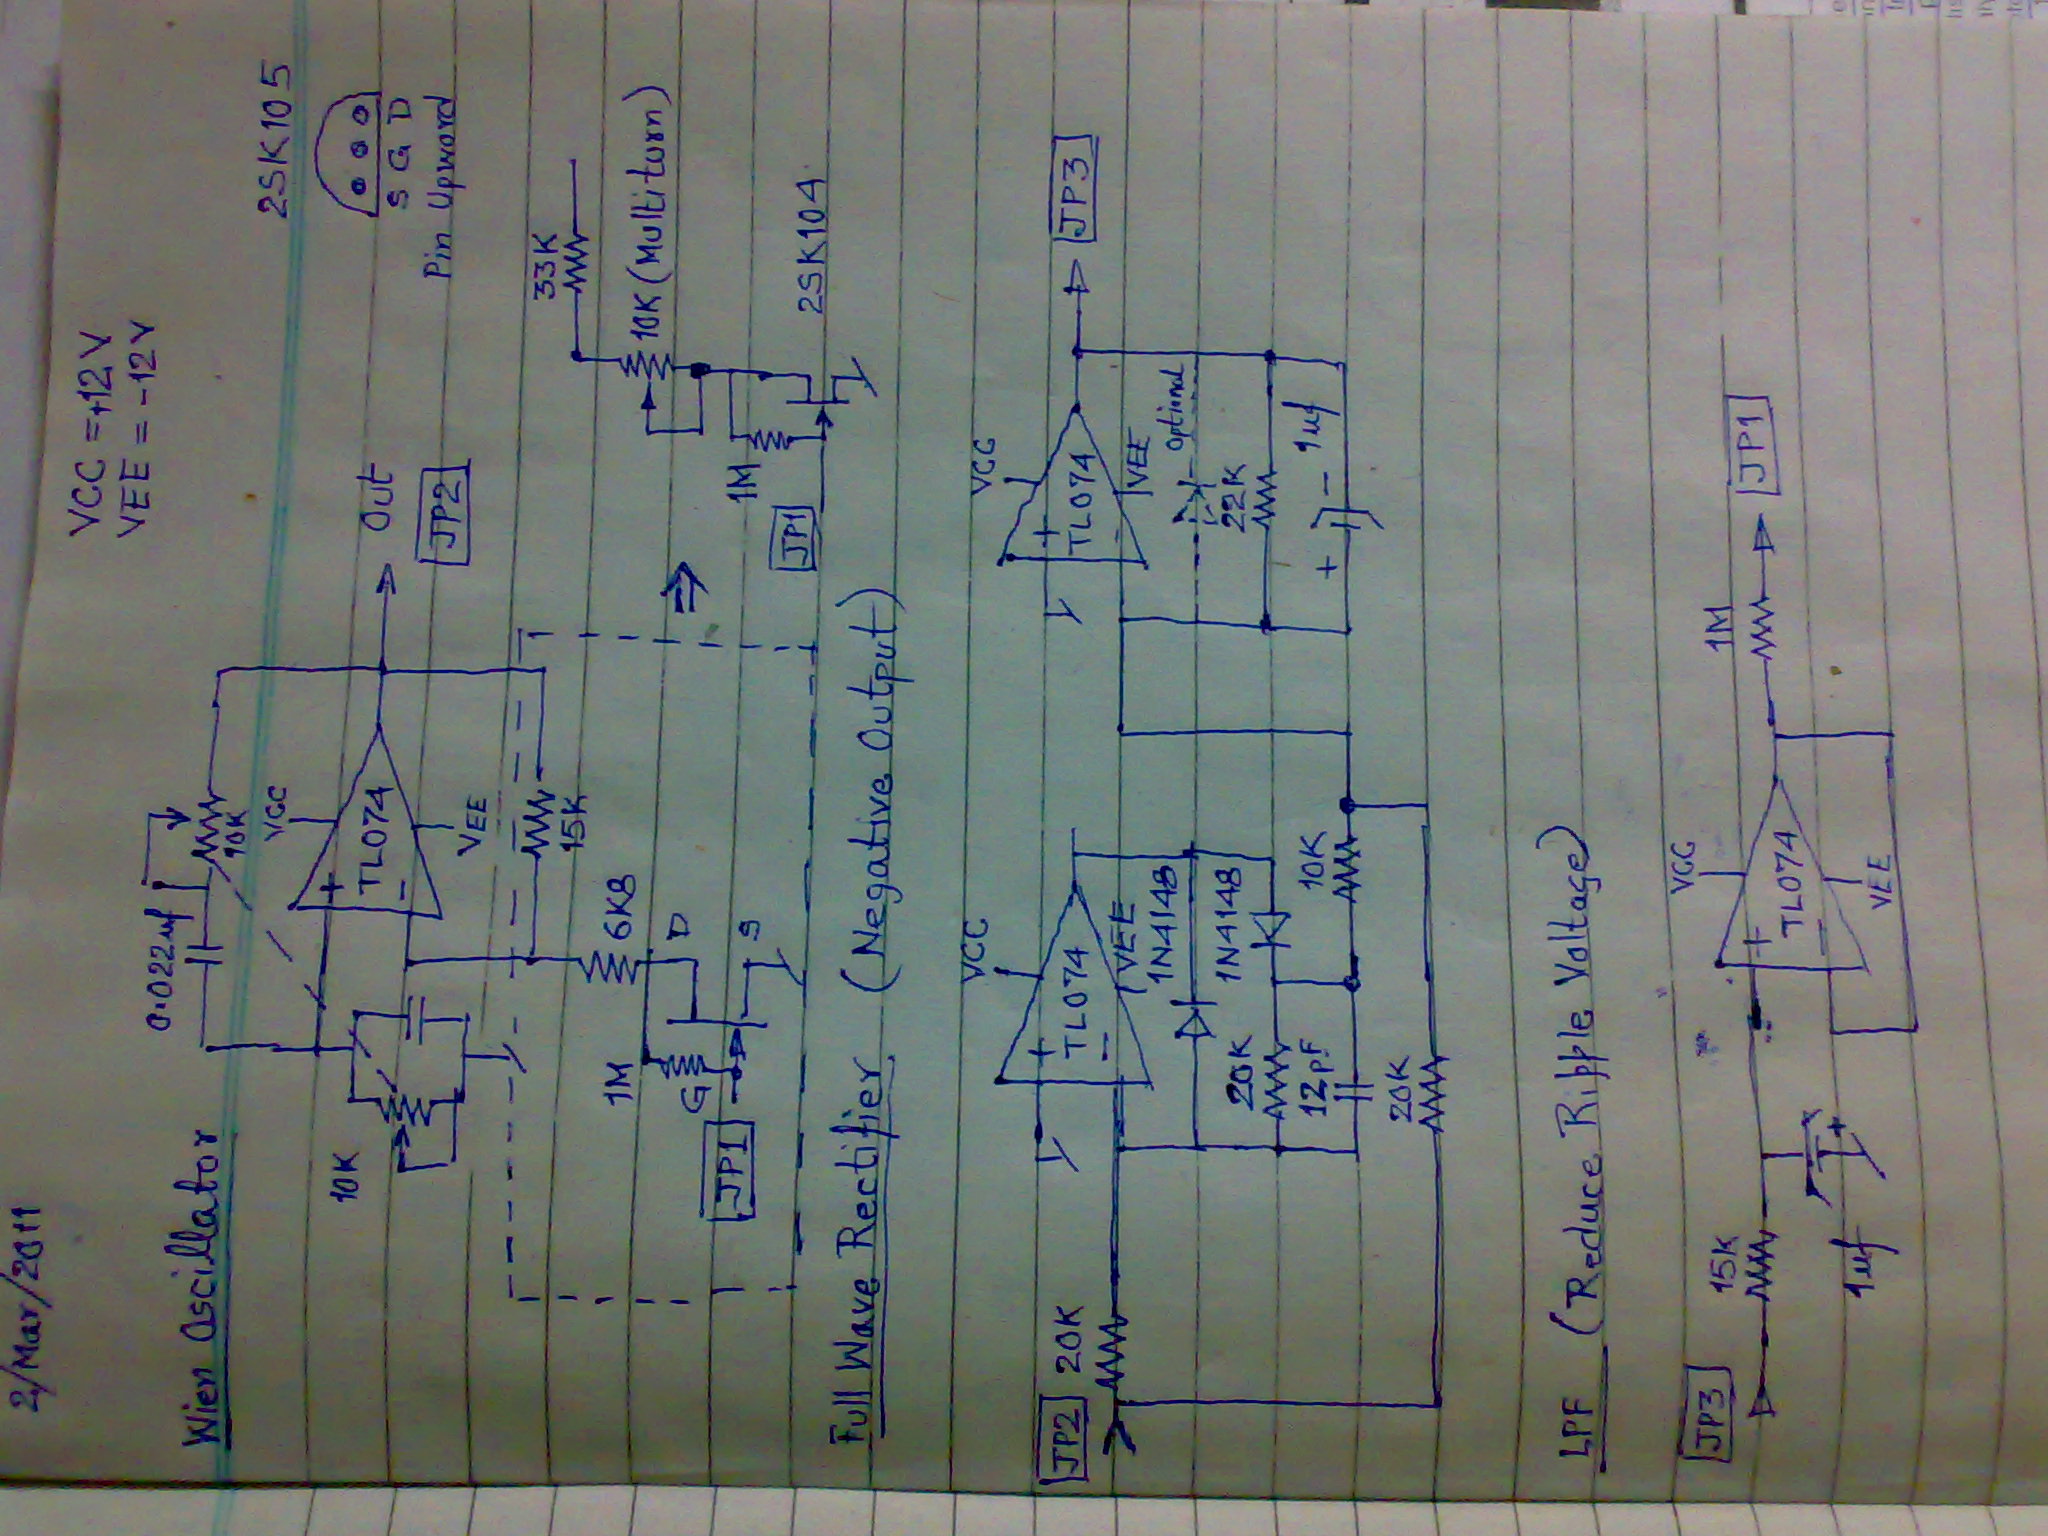 2/Mar/2011
VCC = +12V
VEE = -12V
Wien Oscillator
2SK105
0.022uf
10K
VCC
+
TL074
-
VEE
Out
JP2
S G D
Pin Upword
10K
15K
6K8
D
1M
G
S
JP1
⇒
33K
10K (Multiturn)
1M
JP1
2SK104
Full Wave Rectifier (Negative Output)
JP2
20K
VCC
+
TL074
-
VEE
1N4148
1N4148
20K
12PF
20K
10K
VCC
+
TL074
-
VEE
JP3
Optional
22K
+ - 1uf
LPF (Reduce Ripple Voltage)
JP3
15K
1uf
+
VCC
+
TL074
-
VEE
1M
JP1